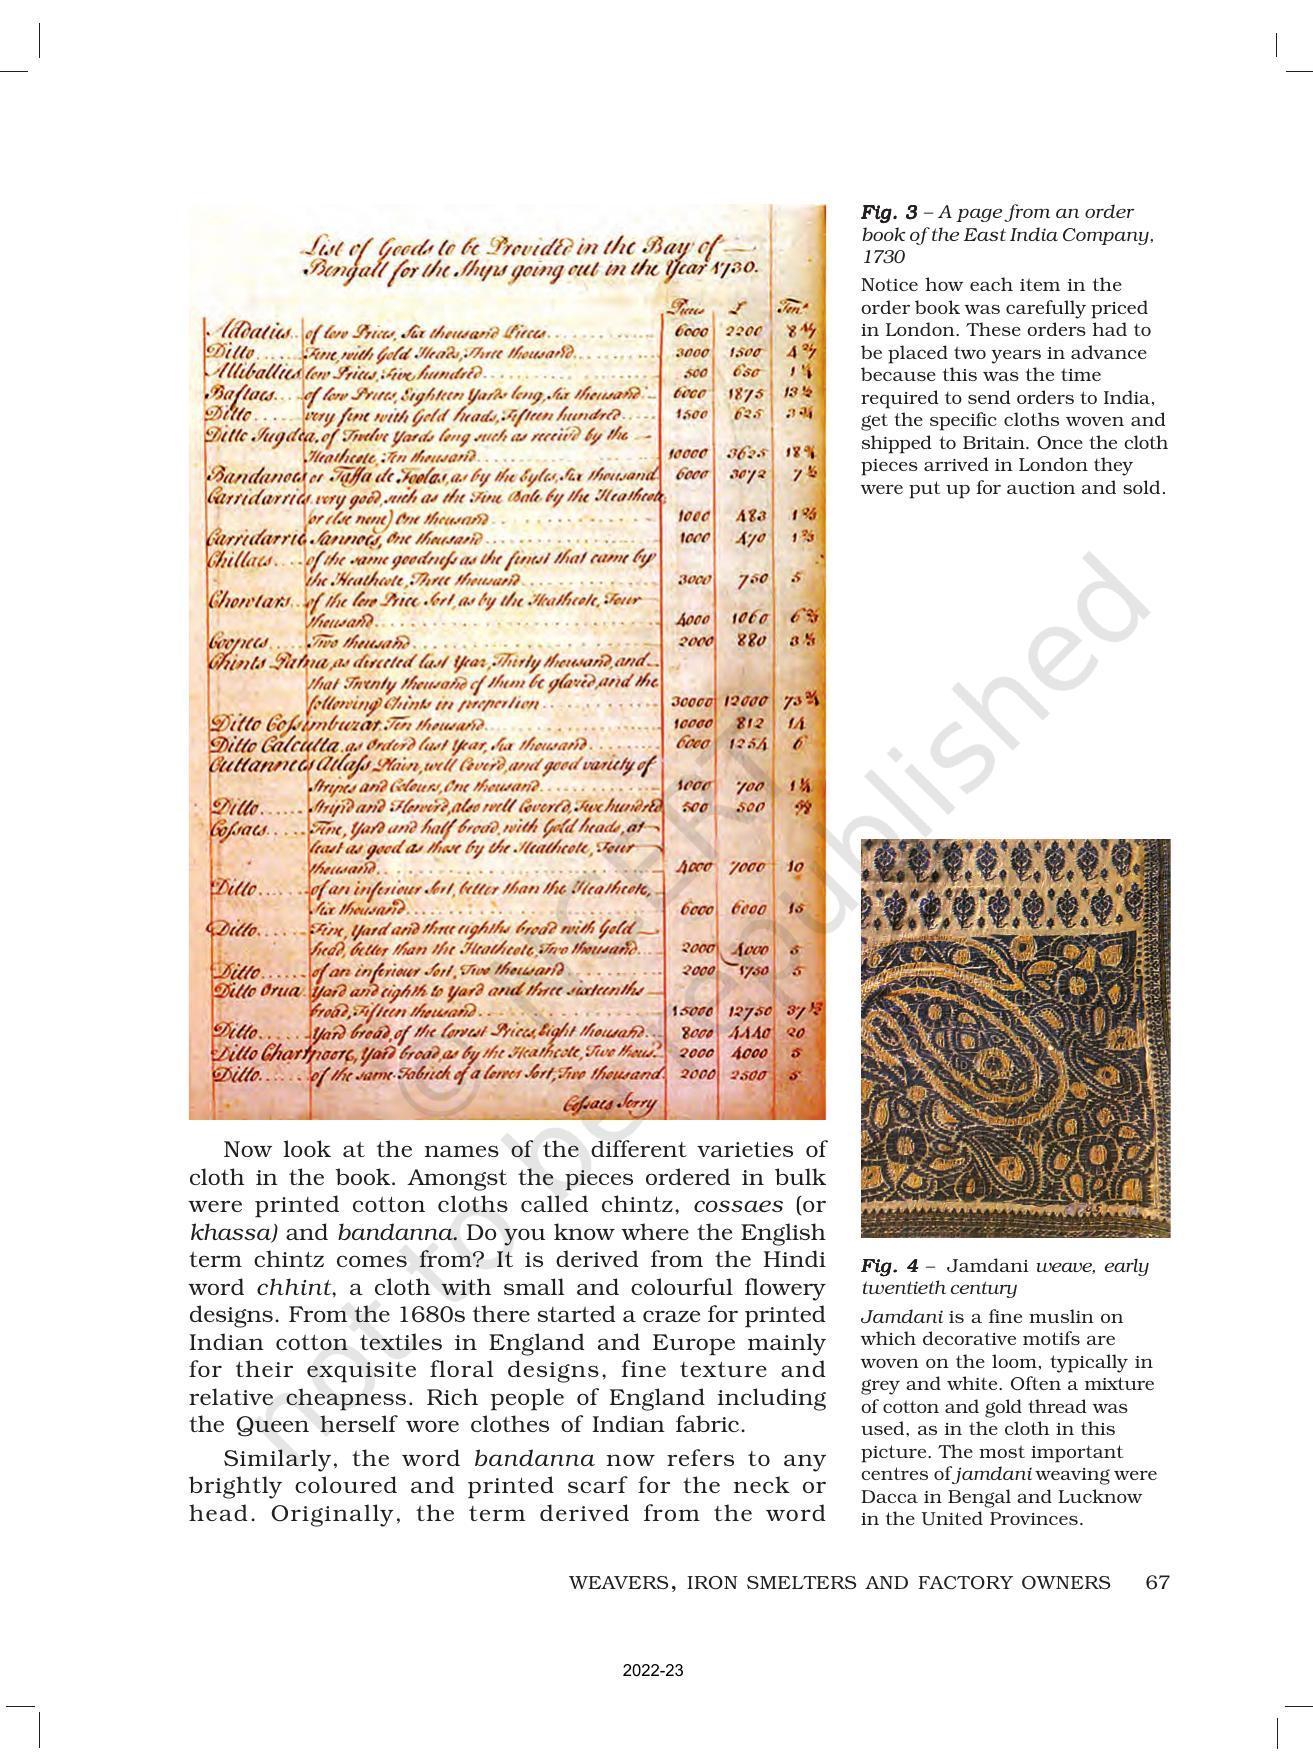 List of Goods to be Provided in the Bay of
Bengall for the Ships going out in the Year 1730.
Pieces £ Tons
Addaties of low Prices, Six thousand Pieces 6000 2200
Ditto Fine, with Gold Heads, Three thousand 3000 1500
Alliballies low Prices, Five hundred 500 650
Baftaes of low Prices, Eighteen Yards long, Six thousand 6000 1875 13 ½
Ditto very fine with Gold heads, Fifteen hundred 1500 625
Ditto Jugdea, of Twelve Yards long such as receiv'd by the
Heathcote, Ten thousand 10000 3625
Bandanoes or Taffa de Foolas, as by the Eyles, Six thousand 6000 3072 7 ½
Carridarries very good, such as the Fine Bale by the Heathcote,
or else none) One thousand 1000 483
Carridarrie Sannoes, One thousand 1000 470
Chillaes of the same goodness as the finest that came by
the Heathcote, Three thousand 3000 750 5
Chowtars of the low Price Sort, as by the Heathcote, Four
thousand 4000 1060
Coopees Two thousand 2000 880
Chints Patna, as directed last Year, Thirty thousand, and
that Twenty thousand of them be glazed, and the
following Chints in proportion 30000 12000
Ditto Cossimbuzar, Ten thousand 10000 812 14
Ditto Calcutta, as Order'd last Year, Six thousand 6000 1254 6
Cuttannees Atlass Plain, well Cover'd, and good variety of
Stripes and Colours, One thousand 1000 700
Ditto Strip'd and Flower'd, also well Covered, Five hundred 500 500
Cossaes Fine, Yard and half broad, with Gold heads, at
least as good as those by the Heathcote, Four
thousand 4000 7000 10
Ditto of an inferiour Sort, better than the Heathcote,
Six thousand 6000 6000 15
Ditto Fine, Yard and three eighths broad with Gold
head, better than the Heathcote, Two thousand 2000 4000 5
Ditto of an inferiour Sort, Two thousand 2000 1750 5
Ditto Orua Yard and eighth to Yard and three sixteenths
broad, Fifteen thousand 15000 12750
Ditto Yard broad, of the lowest Prices, Eight thousand 8000 4440 20
Ditto Charpoore, Yard broad, as by the Heathcote, Two thous. 2000 4000 5
Ditto of the same Fabrick of a lower Sort, Two thousand 2000 2500 5
Cossaes Jerry
Fig. 3 – A page from an order
book of the East India Company,
1730
Notice how each item in the
order book was carefully priced
in London. These orders had to
be placed two years in advance
because this was the time
required to send orders to India,
get the specific cloths woven and
shipped to Britain. Once the cloth
pieces arrived in London they
were put up for auction and sold.
Now look at the names of the different varieties of
cloth in the book. Amongst the pieces ordered in bulk
were printed cotton cloths called chintz, cossaes (or
khassa) and bandanna. Do you know where the English
term chintz comes from? It is derived from the Hindi
word chhint, a cloth with small and colourful flowery
designs. From the 1680s there started a craze for printed
Indian cotton textiles in England and Europe mainly
for their exquisite floral designs, fine texture and
relative cheapness. Rich people of England including
the Queen herself wore clothes of Indian fabric.
Similarly, the word bandanna now refers to any
brightly coloured and printed scarf for the neck or
head. Originally, the term derived from the word
Fig. 4 – Jamdani weave, early
twentieth century
Jamdani is a fine muslin on
which decorative motifs are
woven on the loom, typically in
grey and white. Often a mixture
of cotton and gold thread was
used, as in the cloth in this
picture. The most important
centres of jamdani weaving were
Dacca in Bengal and Lucknow
in the United Provinces.
WEAVERS, IRON SMELTERS AND FACTORY OWNERS 67
2022-23
© NCERT
not to be republished